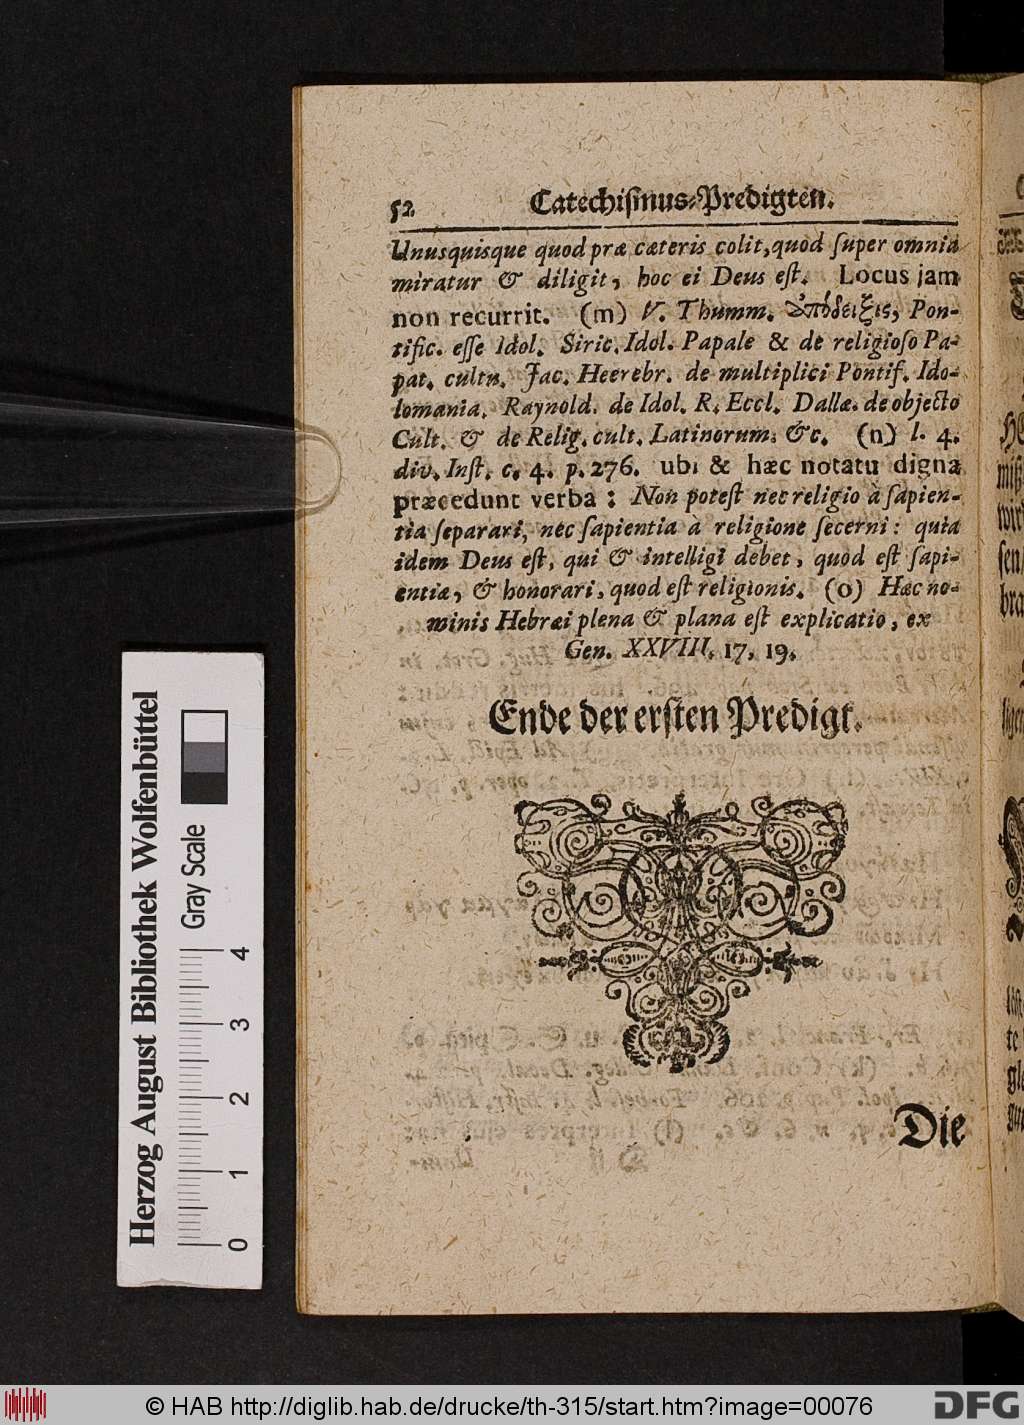 52 Catechiſmus-Predigten.
Unusquisque quod præ cæteris colit, quod ſuper omnia
miratur & diligit, hoc ei Deus eſt. Locus jam
non recurrit. (m) V. Thumm. ἀπόδειξις, Pon-
tific. eſſe Idol. Siric. Idol. Papale & de religioſo Pa-
pat. cultu. Jac. Heerebr. de multiplici Pontif. Ido-
lomania. Raynold. de Idol. R. Eccl. Dallæ. de objecto
Cult. & de Relig. cult. Latinorum. &c. (n) l. 4.
div. Inſt. c. 4. p. 276. ubi & hæc notatu digna
præcedunt verba: Non poteſt nec religio à ſapien-
tia ſeparari, nec ſapientia a religione ſecerni: quia
idem Deus eſt, qui & intelligi debet, quod eſt ſapi-
entiæ, & honorari, quod eſt religionis. (o) Hæc no-
minis Hebræi plena & plana eſt explicatio, ex
Gen. XXVIII. 17, 19.
Ende der erſten Predigt.
Die
Herzog August Bibliothek Wolfenbüttel
Gray Scale
0 1 2 3 4
© HAB http://diglib.hab.de/drucke/th-315/start.htm?image=00076
DFG